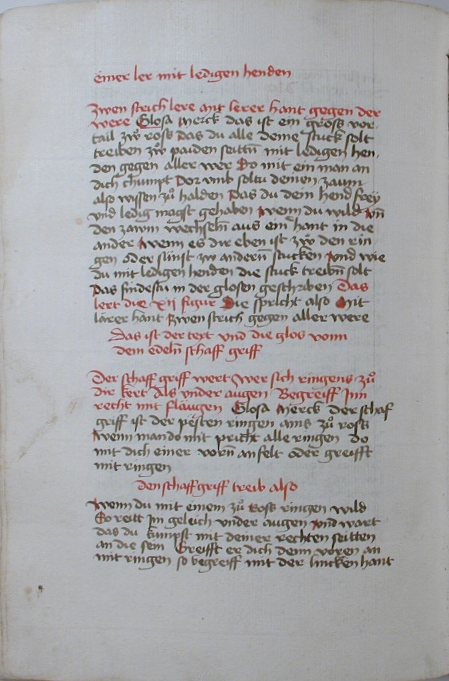 einer ler mit ledigen henden
Zwen strich lere ant lerer hant gegen der
were Glosa Merck das ist ein gross vor
tail zẘ ross das du alle deine stuck solt
treiben zẘ paiden seittñ mit ledigen hen
den gegen aller wer So mit ein man an
dich chumpt Dor vmb soltu deinen zaum
also wissen zu halden Das du dein hend frey
vnd ledig mogst gehaben Wenn du wild vñ
den zawm wechselñ aus einˀ hant in die
ander Wenn es dir eben ist zẘ den rin
gen oder sünst zw andernˀ stucken Vnd wie
du mit ledigen henden die stuck treibñ solt
Das findestu in der glosen geschriben Das
lert die xij figur Die spricht also Mit
lärer hant zwen strich gegen aller were
Das ist der text vnd die glos vonn
dem edelñ schaff griff
Der schaff griff wert Wer sich ringens zu̇
dir kert Als vnder augen Begreiff Inn
recht mit flaugen Glosa Merck Der schaf
griff ist der pesten ringen ains zu̇ ross
Wenn man do mit pricht alle ringen do
mit dich einer vorñ an felt oder greifft
mit ringen
den schaff griff treib also
Wenn du mit einem zu̇ Ross ringen wild
So reitt Im geleich vnder augen Vnd wart
das du kumpst mit deiner rechten seitten
an die sein Greifft er dich denn voren an
mit ringen so begreiff mit der lincken hant